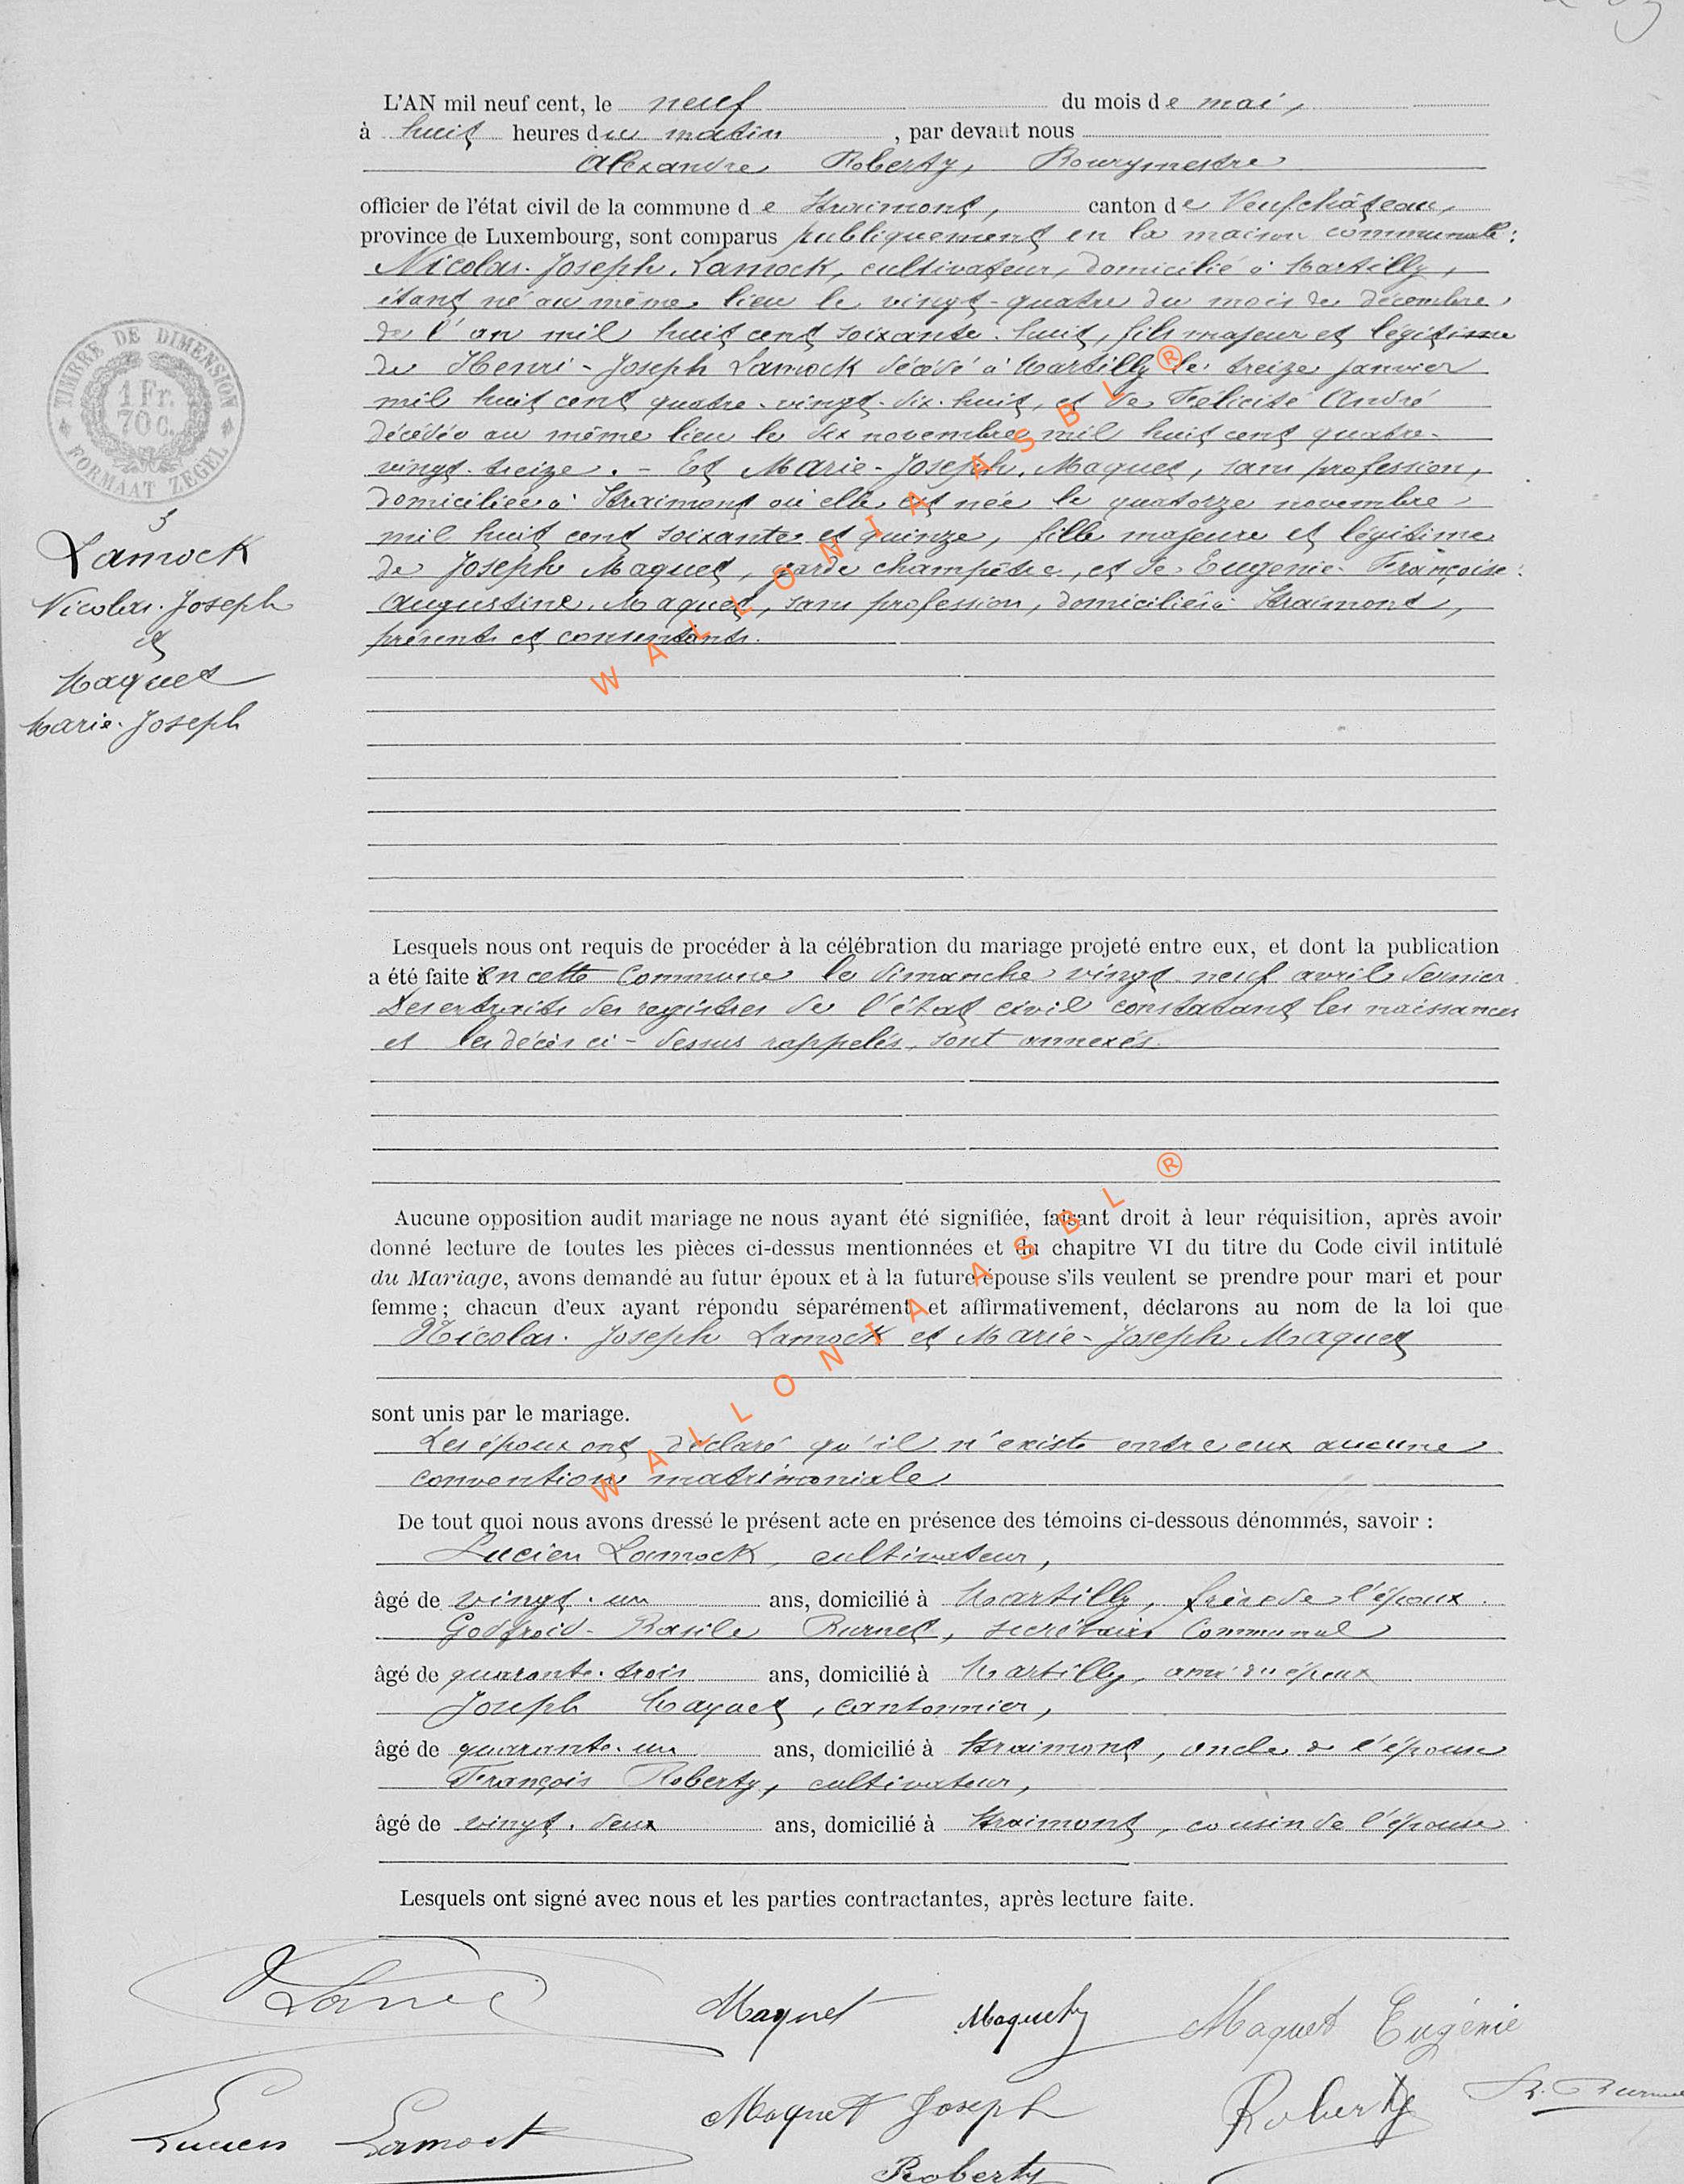 L'AN mil neuf cent, le neuf du mois de mai,
à huit heures du matin, par devant nous
Alexandre Roberty, Bourgmestre
officier de l'état civil de la commune de Straimont, canton de Neufchâteau,
province de Luxembourg, sont comparus publiquement en la maison communale:
Nicolas-Joseph Lamock, cultivateur, domicilié à Martilly,
étant né au même lieu le vingt-quatre du mois de décembre
de l'an mil huit cent soixante-huit, fils majeur et légitime
de Henri-Joseph Lamock décédé à Martilly le treize janvier
mil huit cent quatre-vingt-dix-huit, et de Félicité André
décédée au même lieu le six novembre mil huit cent quatre-
vingt-treize. - Et Marie-Joseph Maquet, sans profession,
domiciliée à Straimont où elle est née le quatorze novembre
mil huit cent soixante et quinze, fille majeure et légitime
de Joseph Maquet, garde champêtre, et de Eugenie-Françoise-
Augustine Maquet, sans profession, domiciliés à Straimont,
présents et consentants.
TIMBRE DE DIMENSION
1 Fr.
70 c.
FORMAAT ZEGEL
3
Lamock
Nicolas-Joseph
et
Maquet
Marie-Joseph
Lesquels nous ont requis de procéder à la célébration du mariage projeté entre eux, et dont la publication
a été faite en cette Commune le dimanche vingt-neuf avril dernier
Des extraits des registres de l'état civil constatant les naissances
et les décès ci-dessus rappelés, sont annexés.
Aucune opposition audit mariage ne nous ayant été signifiée, faisant droit à leur réquisition, après avoir
donné lecture de toutes les pièces ci-dessus mentionnées et du chapitre VI du titre du Code civil intitulé
du Mariage, avons demandé au futur époux et à la future épouse s'ils veulent se prendre pour mari et pour
femme; chacun d'eux ayant répondu séparément et affirmativement, déclarons au nom de la loi que
Nicolas-Joseph Lamock et Marie-Joseph Maquet
sont unis par le mariage.
Les époux ont déclaré qu'il n'existe entre eux aucune
convention matrimoniale
De tout quoi nous avons dressé le présent acte en présence des témoins ci-dessous dénommés, savoir :
Lucien Lamock, cultivateur,
âgé de vingt-un ans, domicilié à Martilly, frère de l'époux
Godfroid-Basile Burnet, secrétaire Communal
âgé de quarante-trois ans, domicilié à Martilly, ami du époux
Joseph Maquet, cantonnier,
âgé de quarante-un ans, domicilié à Straimont, oncle de l'épouse
François Roberty, cultivateur,
âgé de vingt-deux ans, domicilié à Straimont, cousin de l'épouse
Lesquels ont signé avec nous et les parties contractantes, après lecture faite.
Maquet Maquet Maquet Eugénie
Lucien Lamock Maquet Joseph Roberty
Roberty
WALLONIA ASBL ®
WALLONIA ASBL ®